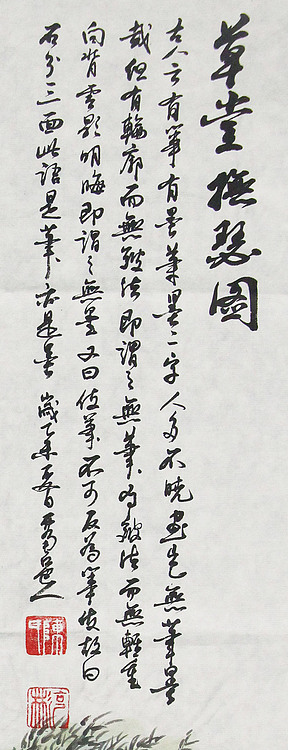 草堂撫瑟图
古人云有筆有墨筆墨二字人多不曉畫豈無筆墨
哉但有輪廓而無皴法即謂之無筆有皴法而無輕重
向背雲影明晦即謂之無墨又曰使筆不可反為筆使故曰
石分三面此語是筆亦是墨 歲乙未